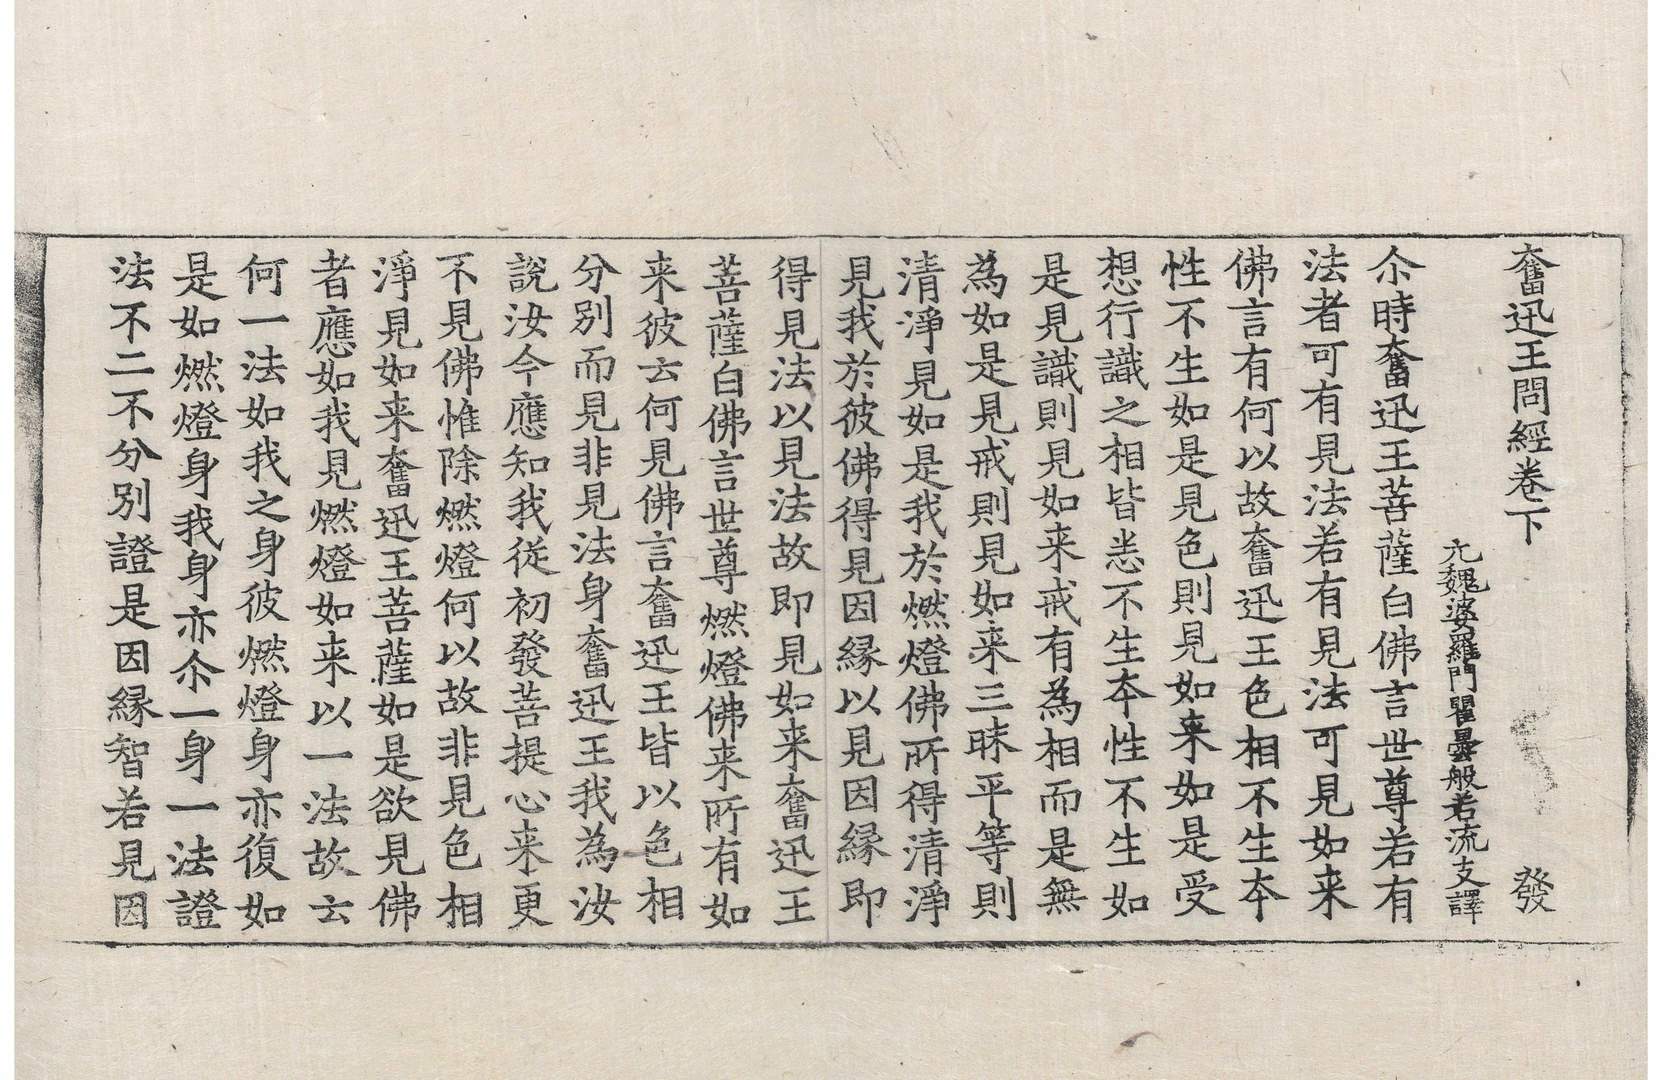 奮迅王問經卷下 發
元魏婆羅門瞿曇般若流支譯
尒時奮迅王菩薩白佛言世尊若有
法者可有見法若有見法可見如来
佛言有何以故奮迅王色相不生夲
性不生如是見色則見如来如是受
想行識之相皆悉不生夲性不生如
是見識則見如来戒戒有為相而是無
為如是見戒則見如来三昧平等則
清淨見如是我於燃燈佛所得清淨
見我於彼佛得見因緣以見因緣即
得見法以見法故即見如来奮迅王
菩薩白佛言世尊燃燈佛来所有如
来彼云何見佛言奮迅王皆以色相
分別而見非見法身奮迅王我為汝
說汝今應知我從初發菩提心来更
不見佛惟除燃燈何以故非見色相
淨見如来奮迅王菩薩如是欲見佛
者應如我見燃燈如来以一法故云
何一法如我之身彼燃燈身亦復如
是如燃燈身我身亦尒一身一法證
法不二不分別證是因緣智若見因